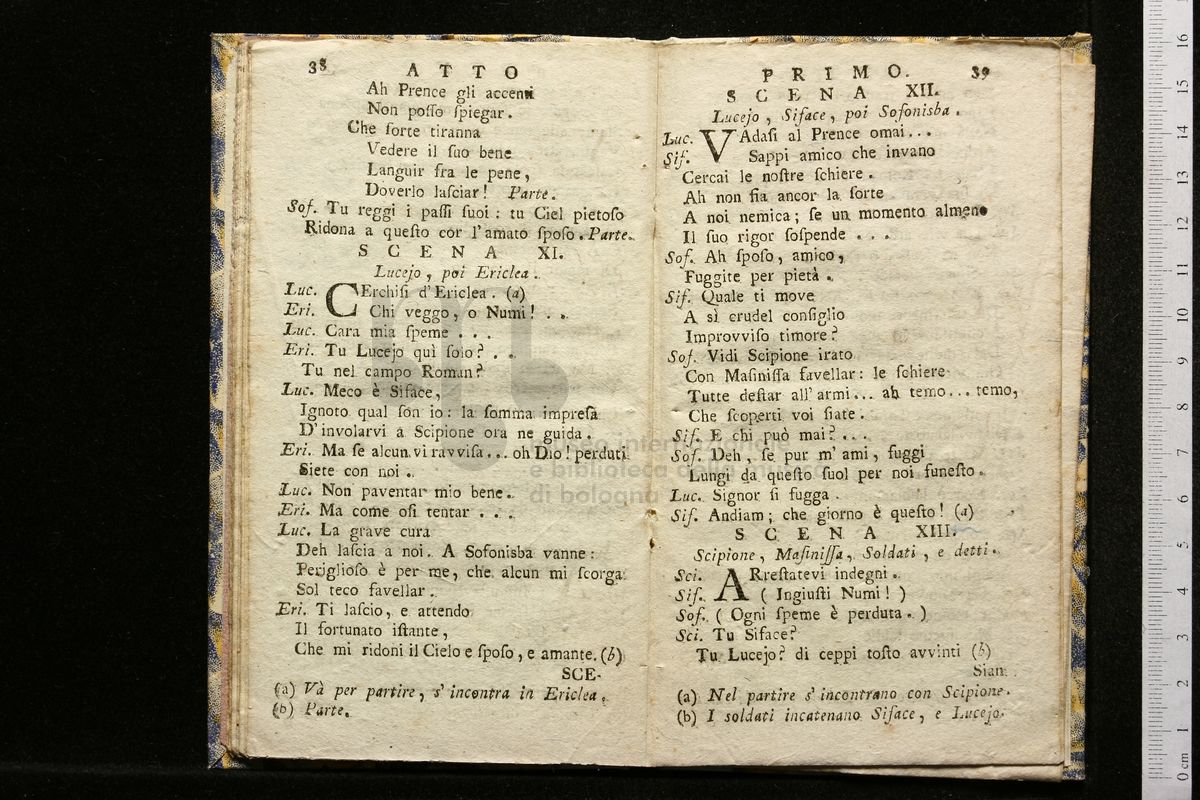 38 ATTO
Ah Prence gli accenti
Non poſſo ſpiegar.
Che ſorte tiranna
Vedere il ſuo bene
Languir fra le pene,
Doverlo laſciar! Parte.
Sof. Tu reggi i paſſi ſuoi: tu Ciel pietoſo
Ridona a queſto cor l'amato ſpoſo. Parte.
SCENA XI.
Lucejo, poi Ericlea.
Luc. CErchiſi d'Ericlea. (a)
Eri. Chi veggo, o Numi! . .
Luc. Cara mia ſpeme . . .
Eri. Tu Lucejo quì ſolo? . .
Tu nel campo Roman?
Luc. Meco è Siface,
Ignoto qual ſon io: la ſomma impreſa
D'involarvi a Scipione ora ne guida.
Eri. Ma ſe alcun vi ravviſa... oh Dio! perduti
Siete con noi..
Luc. Non paventar mio bene.
Eri. Ma come oſi tentar . . .
Luc. La grave cura
Deh laſcia a noi. A Sofonisba vanne:
Periglioſo è per me, che alcun mi ſcorga
Sol teco favellar.
Eri. Ti laſcio, e attendo
Il fortunato iſtante,
Che mi ridoni il Cielo e ſpoſo, e amante. (b)
SCE-
(a) Và per partire, s'incontra in Ericlea.
(b) Parte.
PRIMO. 39
SCENA XII.
Lucejo, Siface, poi Sofonisba.
Luc. VAdaſi al Prence omai...
Sif. Sappi amico che invano
Cercai le noſtre ſchiere.
Ah non fia ancor la ſorte
A noi nemica; ſe un momento almeno
Il ſuo rigor ſoſpende . . .
Sof. Ah ſpoſo, amico,
Fuggite per pietà.
Sif. Quale ti move
A sì crudel conſiglio
Improvviſo timore?
Sof. Vidi Scipione irato
Con Maſiniſſa favellar: le ſchiere
Tutte deſtar all'armi... ah temo... temo,
Che ſcoperti voi ſiate.
Sif. E chi può mai? . . .
Sof. Deh, ſe pur m'ami, fuggi
Lungi da queſto ſuol per noi funeſto.
Luc. Signor ſi fugga.
Sif. Andiam; che giorno è queſto! (a)
SCENA XIII.
Scipione, Maſiniſſa, Soldati, e detti.
Sci. ARreſtatevi indegni.
Sif. ( Ingiuſti Numi! )
Sof. ( Ogni ſpeme è perduta. )
Sci. Tu Siface?
Tu Lucejo? di ceppi toſto avvinti (b)
Sian
(a) Nel partire s'incontrano con Scipione.
(b) I soldati incatenano Siface, e Lucejo.
museo internazionale
e biblioteca della musica
di bologna
0 cm 1 2 3 4 5 6 7 8 9 10 11 12 13 14 15 16